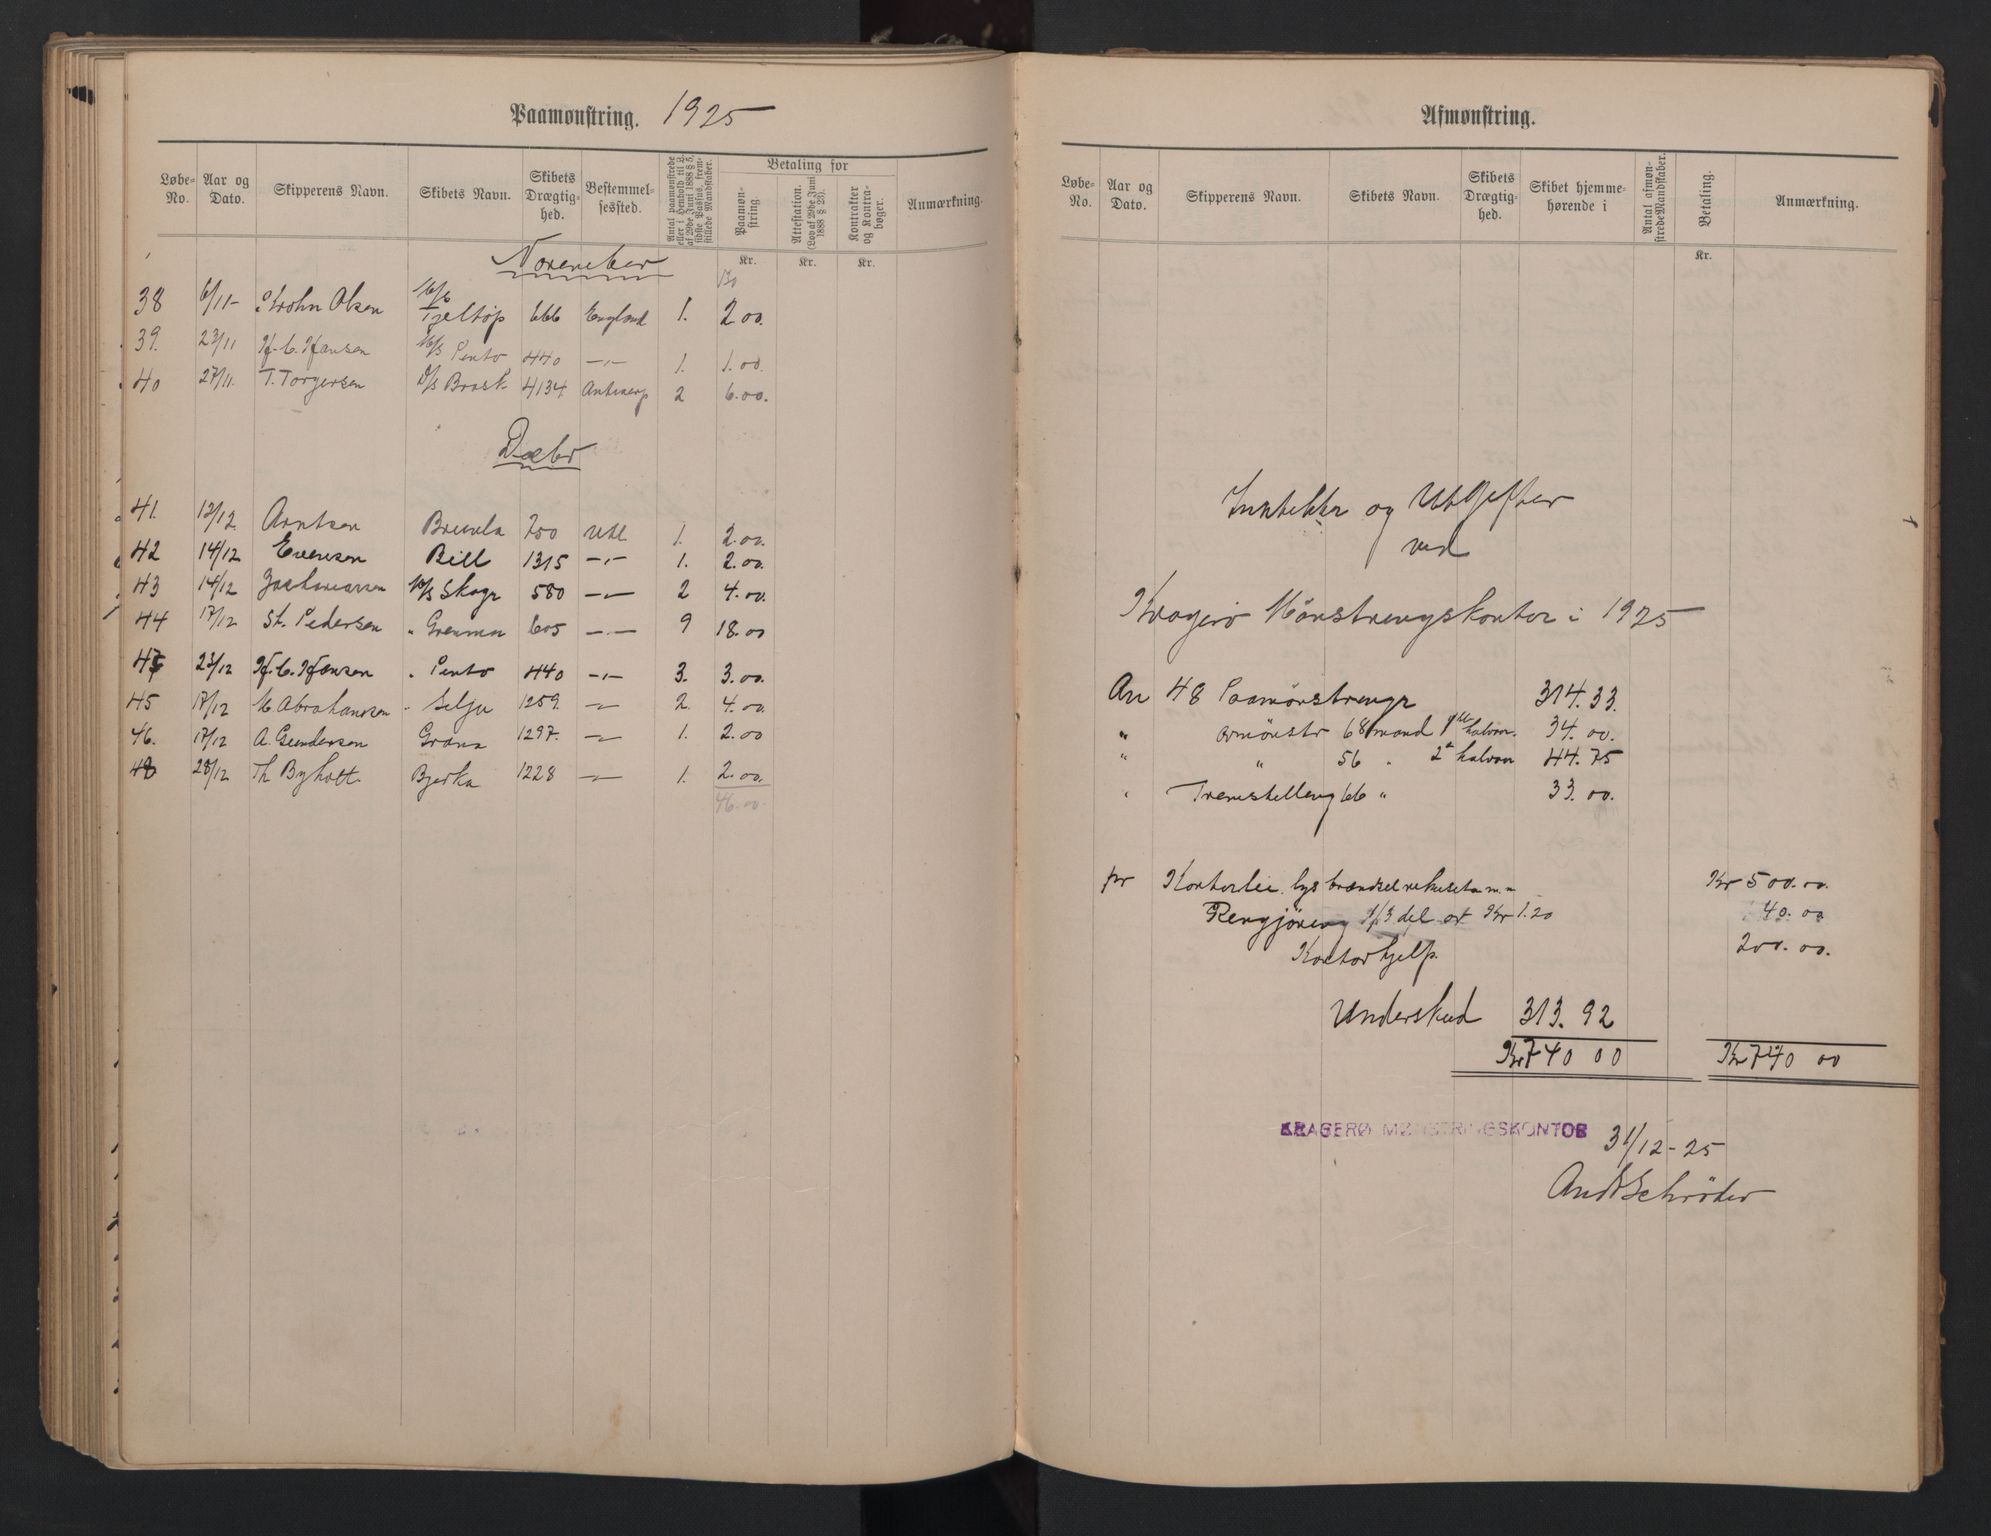 Paamønstring. 1925
Løbe-No. Aar og Dato. Skipperens Navn. Skibets Navn. Skibets Drægtighed. Bestemmelsessted. Antal paamønstrede eller i Henhold til L. af 29de Juni 1888 § 5, sidste Passus, fremstillede Mandskaber. Betaling for Anmærkning.
Paamønstring. Attestation. (Lov af 29de Juni 1888 § 23). Kontrakter og Kontrabøger.
Kr. Kr. Kr.
November
38 6/11- Krohn Olsen M/S Tjeltøp 666 England 1. 2.00.
39. 23/11 H. C. Hansen M/S Pento 440 -,,- 1. 1.00.
40 27/11. T. Torgersen D/S Brask 4134 Antwerp 2 6.00.
Decbr
41. 12/12. Arntsen Brumla 700 Utl. 1. 2.00.
42 14/12 Evensen Bill 1315 -,,- 1. 2.00.
43 14/12 Zachariassen M/S Skagr 580 -,,- 2 4.00.
44 17/12 St. Pedersen " Grenmar 605 -,,- 9 18.00
47 23/12 H. C. Hansen " Pento 440 -,,- 3. 3.00.
45 17/12 M Abrahamsen " Selju 1259. -,,- 2. 4.00.
46. 17/12 A. Gundersen Grana 1297. -,,- 1. 2.00
48 28/12 Th Byholt Bjerka 1228 -,,- 1. 2.00.
46.00.
Afmønstring.
Løbe-No. Aar og Dato. Skipperens Navn. Skibets Navn. Skibets Drægtighed. Skibet hjemmehørende i Antal afmønstrede Mandskaber. Betaling. Anmærkning.
Kr.
Inntekter og Utgifter
ved
Kragerø Mønstringskontor i 1925
An 48 Paamønstringr 314.33.
" avmønstr 68 mand 1ste halvaar. 34.00.
" " 56 " 2. halvaar 44.75
" Fremstilling 66 " 33.00.
pr Kontorleie lys brændsel rekvisita m.m Kr 500.00.
Rengjøring 1/3 del av Kr 1.20 40.00
Kontorhjelp. 200.00.
Underskud 313.92
Kr 740 00 Kr 740 00
KRAGERØ MØNSTRINGSKONTOR 31/12-25
And Schrøder